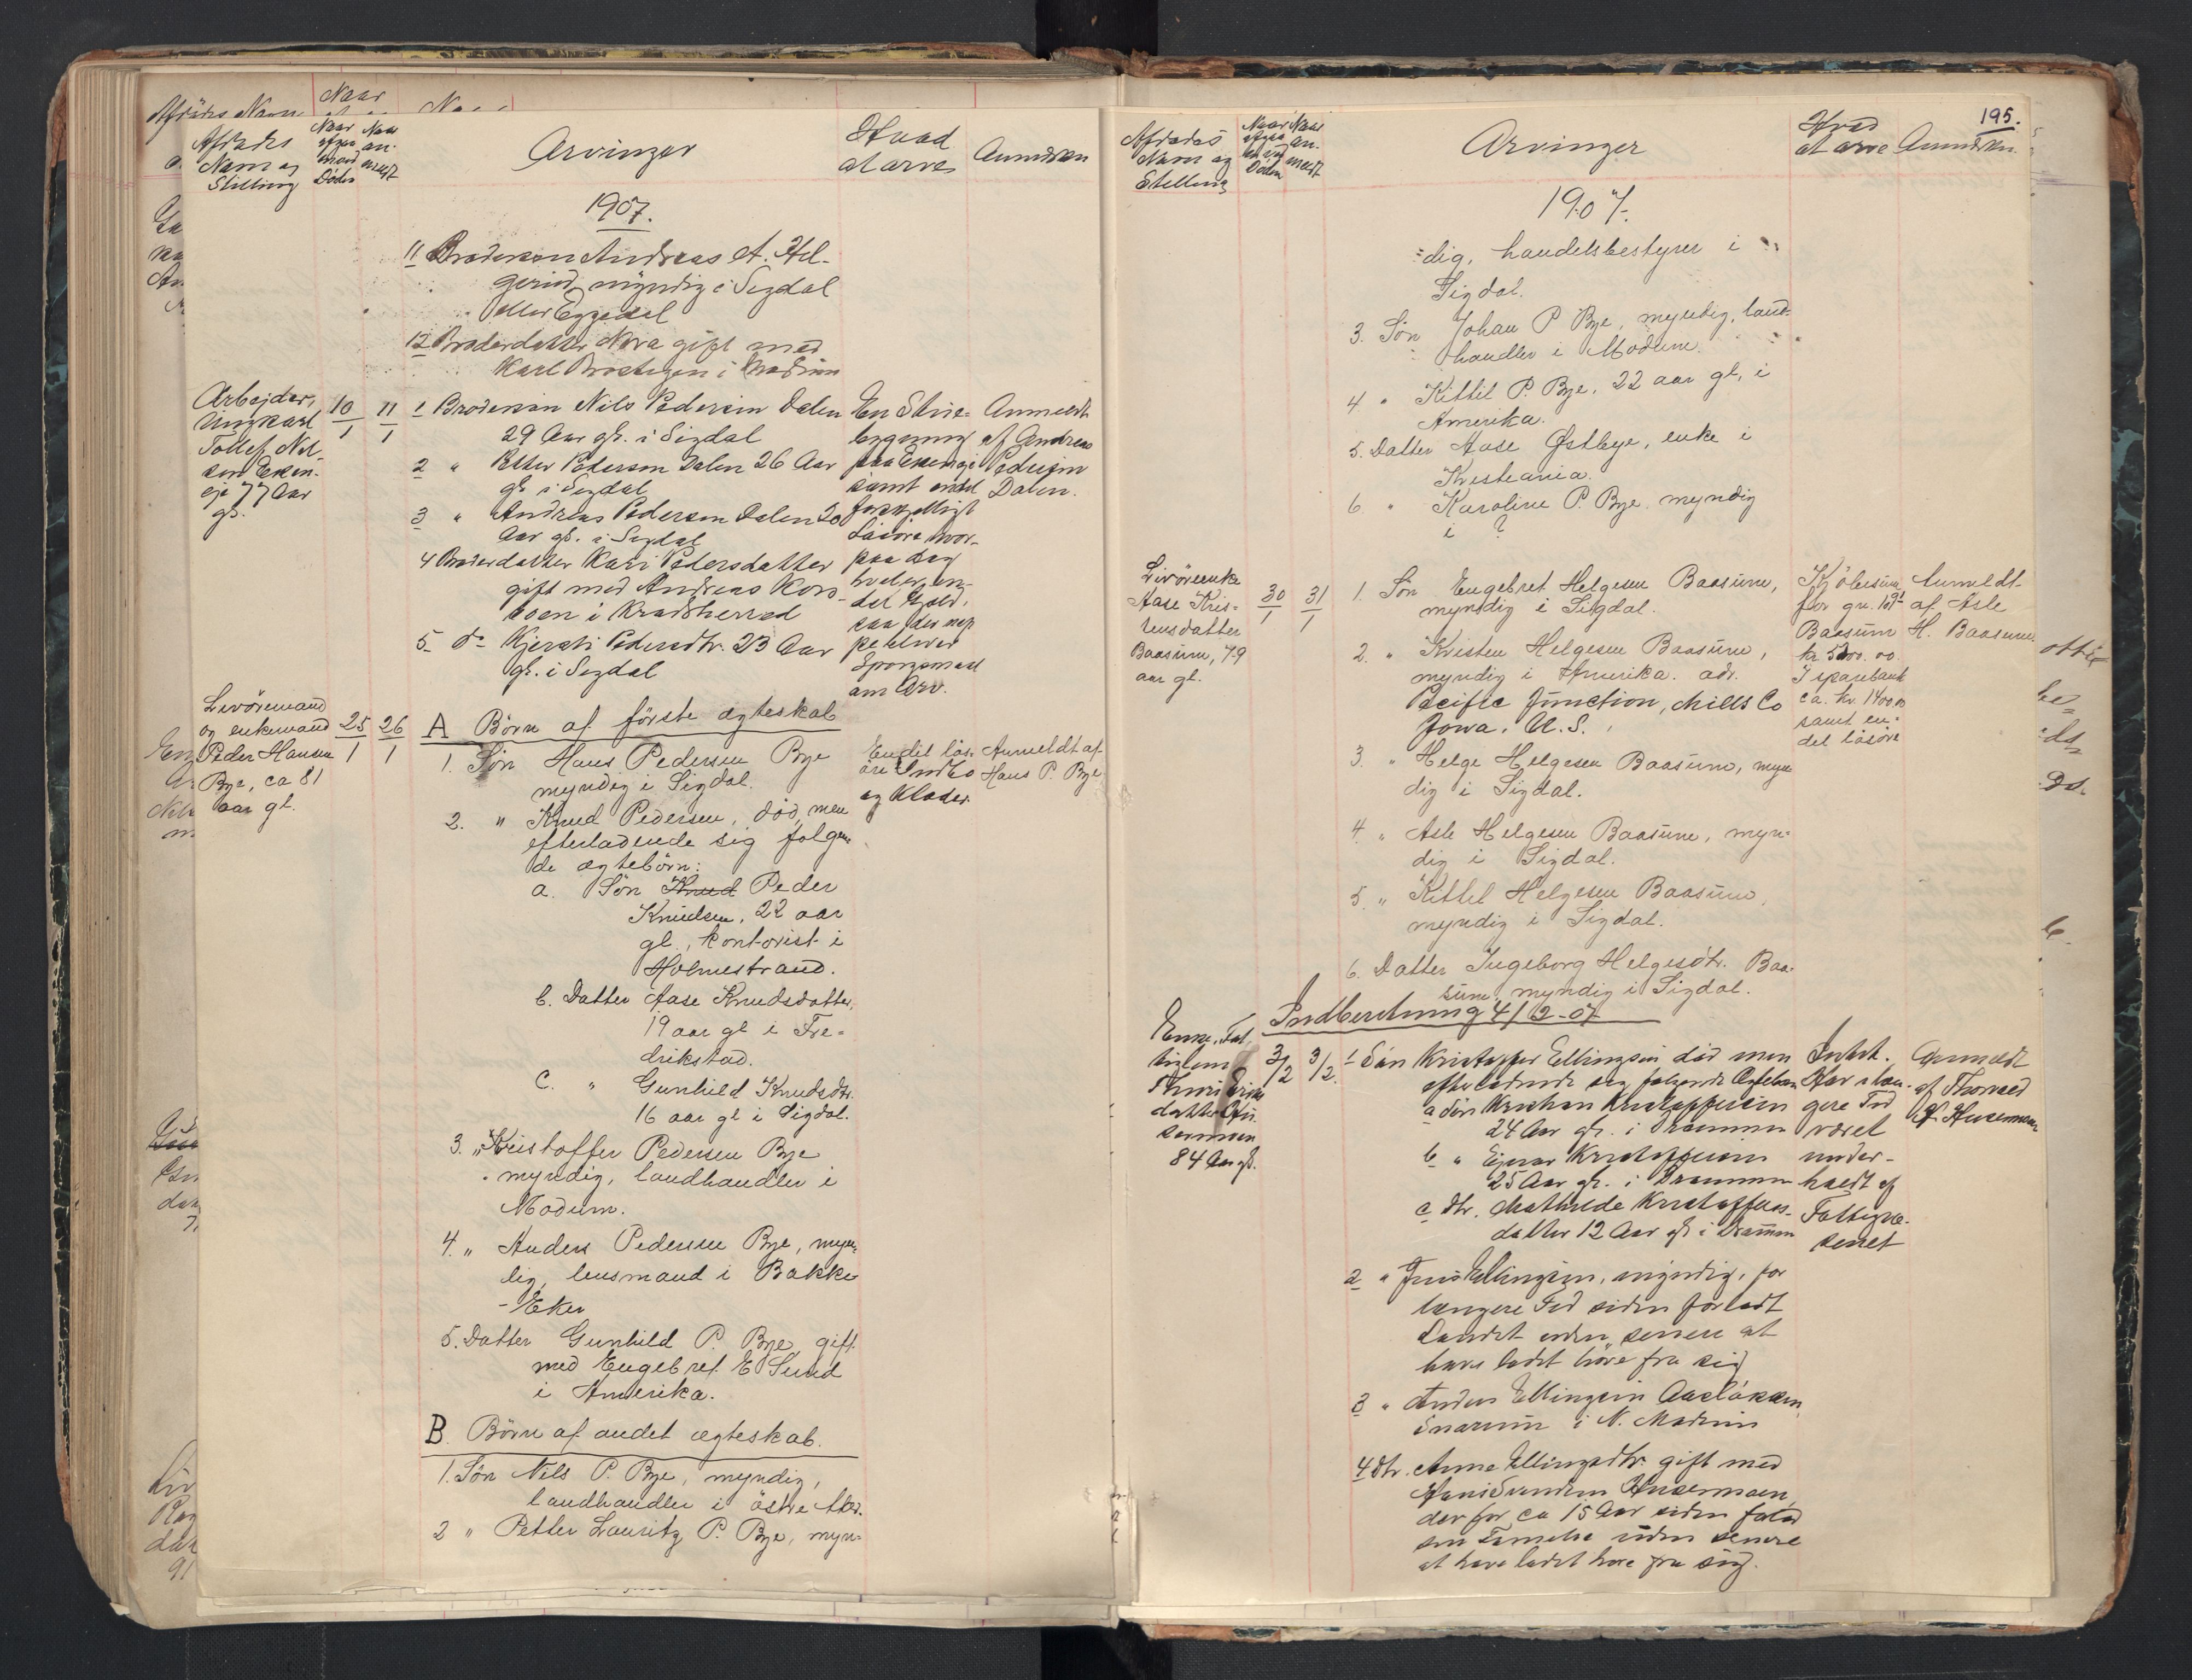 Afdødes
Navn og
Stilling
Naar
afgaa
ved
Døden
Naar
an-
meldt
Arvinger
Hvad
at arve
Anmerkn
1907.
11 Brodersøn Andreas A. Hel-
gerud, myndig i Sigdal
eller Eggedal
12 Broderdatter Nora gift med
Karl i Modum
Arbejder,
Ungkarl
Tollef Nil-
sen
eje 77 Aar
gl.
10/1
11/1
1 Brodersøn Nils Pedersen Dalen
29 Aar gl. i Sigdal
2 " Petter Pedersen Dalen 26 Aar
gl. i Sigdal
3 " Andreas Pedersen Dalen 20
Aar gl. i Sigdal
4 Broderdatter Kari Pedersdatter
gift med Andreas Kors-
boen i Kradsherred
5 do Kjersti Pedersdtr. 23 Aar
gl. i Sigdal
En Stue-
bygning
paa
samt endel
forskjelligt
Løsøre hvor-
paa dog
hviler en-
del Gjæld,
saa der nep
pe bliver
Spørgsmaal
om Arv.
Anmeldt
af Andreas
Pedersen
Dalen.
Livøremand
og enkemand
Peder Hansen
Bye, ca 81
aar gl.
25/1
26/1
A Børn af første ægteskab
1. Søn Hans Pedersen Bye
myndig i Sigdal.
2. " Knud Pedersen, død, men
efterladende sig følgen
de ægtebørn:
a. Søn Knud Peder
Knudsen, 22 aar
gl., kontorist i
Holmestrand.
b. Datter Aase Knudsdatter,
19 aar gl i Fre-
drikstad.
C. " Gunhild Knudsdtr.
16 aar gl i Sigdal.
3. " Kristoffer Pedersen Bye
myndig, landhandler i
Modum.
4. " Anders Pedersen Bye, myn-
dig, lensmand i Bakke
- Eker
5. Datter Gunhild P. Bye, gift
med Engebret E Sund
i Amerika.
B Børn af andet ægteskab.
1. Søn Nils P. Bye, myndig,
landhandler i østre Aker.
2 " Petter Lauritz P. Bye, myn-
Endel løs-
øre
og Klæder.
Anmeldt af
Hans P. Bye
195.
Afdødes
Navn og
Stilling
Naar
afgaa
ved
Døden
Naar
an-
meldt
Arvinger
Hvad
at arve
Anmerkn.
1907.
-dig, handelsbestyrer i
Sigdal.
3. Søn Johan P Bye, myndig, land-
handler i Modum.
4 " Kittil P. Bye, 22 aar gl, i
Amerika.
5. Datter Aase Østbye, enke i
Kristiania.
6 " Karoline P. Bye myndig
i ?
Livøreenke
Aase Kris-
tensdatter
Baasum, 79
aar gl.
30/1
31/1
1. Søn Engebret Helgesen Baasum,
myndig i Sigdal.
2. " Kristen Helgesen Baasum,
myndig i Amerika. adr.
Pacific Junction, Mills Co
Jowa. U.S.
3. " Helge Helgesen Baasum, myn
dig i Sigdal.
4. " Asle Helgesen Baasum, myn-
dig i Sigdal.
5. " Kittel Helgesen Baasum,
myndig i Sigdal.
6. Datter Ingeborg Helgesdtr. Baa-
sum, myndig i Sigdal.
Kjøbesum
for gr.
Baasum
I sparebank
ca. kr. 1400
samt en-
del løsøre
Anmeldt
af Asle
H. Baasum.
Indberetning 4/2-07
Enke, Fat-
tiglem
datter
84 Aar gl.
3/2
3/2.
1 Søn Kristoffer Ellingsen død men
efterladende sig følgende Ægtebørn
a Søn Kristian Kristoffersen
24 Aar gl. i Drammen
b " Ejnar Kristoffersen
25 Aar gl. i Drammen
c dtr. Mathilde Kristoffers-
datter 12 Aar gl i Drammen
2 " Ellingsen, myndig, for
længere Tid siden forladt
Landet uden senere at
have ladet høre fra sig
3 " Anders Ellingsen
Snarum i N. Modum
4 dtr. Anne Ellingsdtr. gift med
der for ca 15 Aar siden forlod
sin Familie uden senere
at have ladet høre fra sig.
Intet.
Har i læn-
gere Tid
været
under-
holdt af
Fattigvæ-
senet
Anmeldt
af